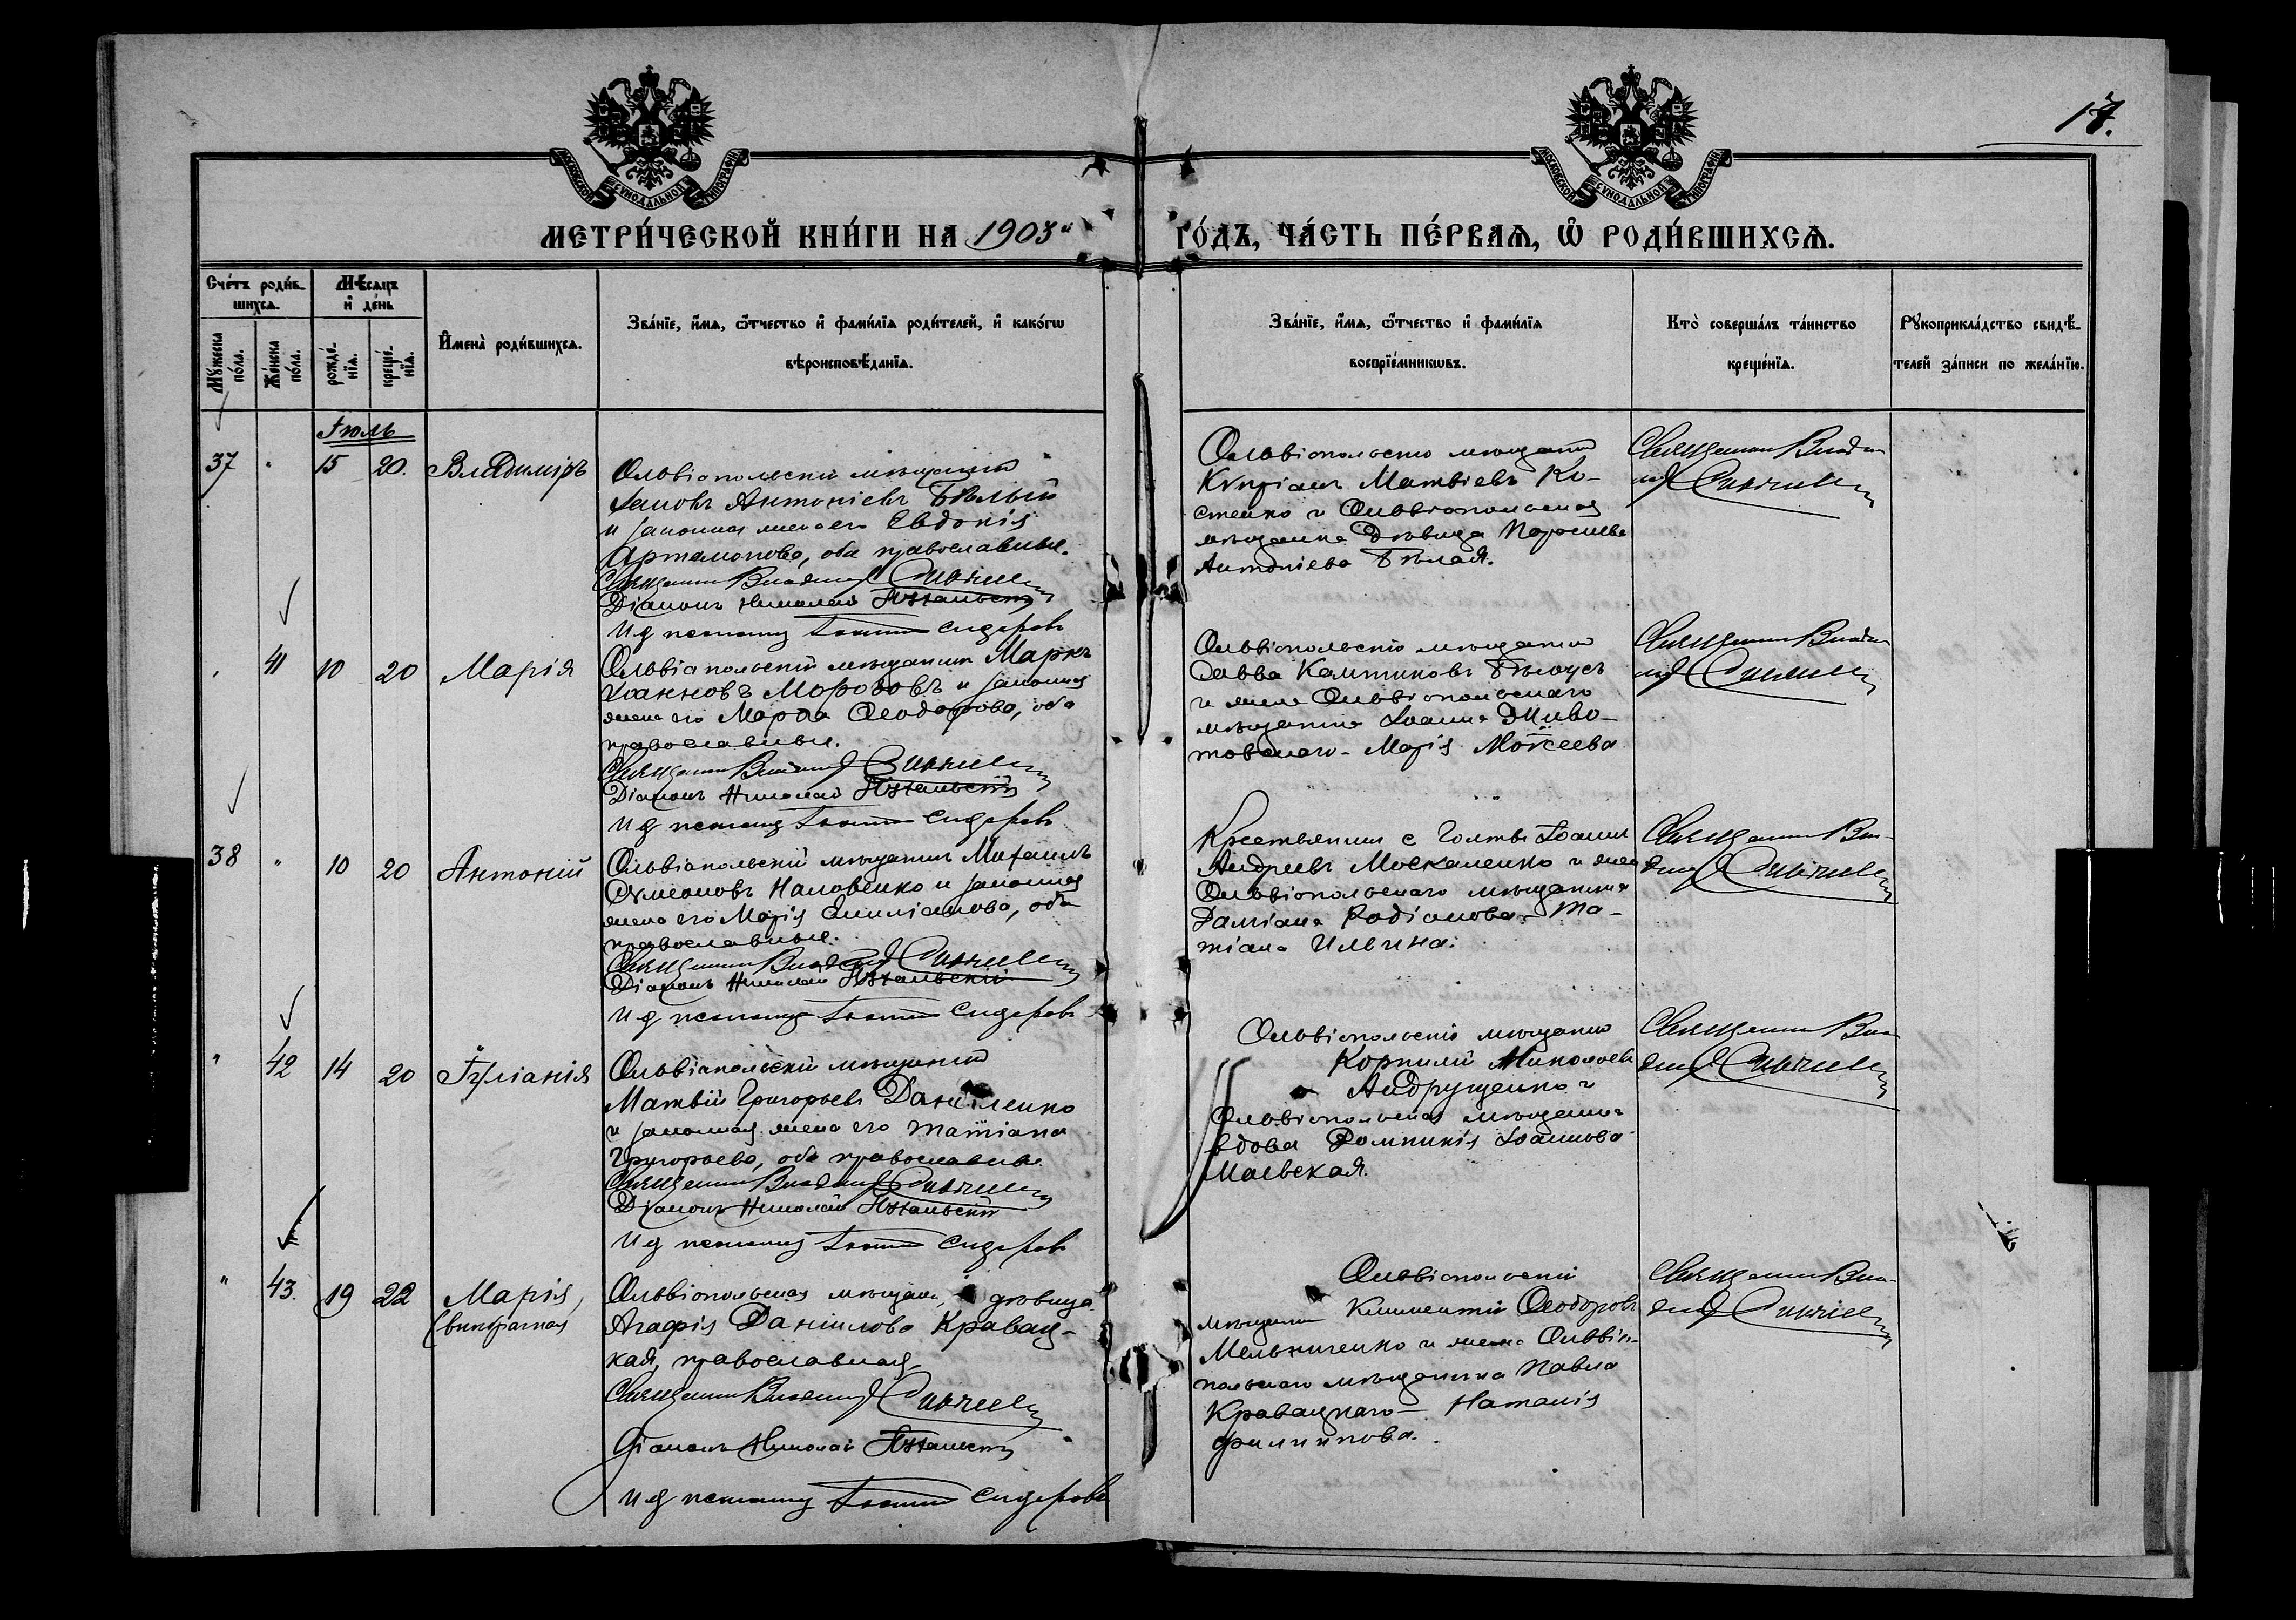 17.
МОСКОВСКОЙ СѴНОДАЛЬНОЙ ТИПОГРАФІИ
МОСКОВСКОЙ СѴНОДАЛЬНОЙ ТИПОГРАФІИ
МЕТРИ́ЧЕСКОЙ КНИ́ГИ НА 1903й ГО́ДЪ, ЧА́СТЬ ПЕ́РВАѦ, Ѡ РОДИ́ВШИХСѦ.
Сче́тъ роди́в-
шихсѧ.
Мѣ́сѧцъ
и҆ де́нь
Мꙋ́жеска по́ла.
Же́нска по́ла.
рожде́-
нїѧ.
креще́-
нїѧ.
И҆мена̀ роди́вшихсѧ.
Зва́нїе, и҆́мѧ, ѻ҆́тчество и҆ фами́лїѧ роди́телей, и҆ како́гѡ
вѣроисповѣ́данїѧ.
Зва́нїе, и҆́мѧ, ѻ҆́тчество и҆ фами́лїѧ
воспрїе́мникѡвъ.
Кто̀ соверша́лъ та́инство
креще́нїѧ.
Рꙋкоприкла́дство свидѣ́-
телей за́писи по жела́нїю.
Іюль
37 " 15 20. Владиміръ
Ольвіопольскій мѣщанинъ
Іаковъ Антоніевъ Бѣлый
и законная жена его Евдокія
Артамонова, оба православные.
Священникъ Владимір
Діаконъ Николай
И д псаломщ Сидоровъ
Ольвіопольскій мѣщанинъ
Кѵпріанъ Матвіевъ Ко-
стенко и Ольвіопольская
мѣщанка дѣвица Параскева
Антоніева Бѣлая.
Священникъ Влади
мір
" 41 10 20 Марія
Ольвіопольскій мѣщанинъ Маркъ
Іоанновъ Морозовъ и законная
жена его Марѳа Ѳеодорова, оба
православные.
Священникъ Владимір
Діаконъ Николай
И д псаломщ Сидоровъ
Ольвіопольскій мѣщанинъ
Савва Каллиниковъ Бѣлоусъ
и жена Ольвіопольскаго
мѣщанина Іоанна Живо-
товскаго - Марія Моѵсеева
Священникъ Влади
мір
38 " 10 20 Антоній
Ольвіопольскій мѣщанинъ Михаилъ
Сѵмеоновъ Наловенко и законная
жена его Марія Емиліанова, оба
православные.
Священникъ Владимір
Діаконъ Николай
И д псаломщ Сидоровъ
Крестьянинъ с Голты Іоаннъ
Андреевъ Москаленко и жена
Ольвіопольскаго мѣщанина
Даміана Родіонова - Та-
тіана Ильина.
Священникъ Вла-
димір
" 42 14 20 Іуліанія
Ольвіопольскій мѣщанинъ
Матвій Григорьевъ Даниленко
и законная жена его Татіана
Григорьева, оба православные
Священникъ Владимір
Діаконъ Николай
И д псаломщ Сидоровъ
Ольвіопольскій мѣщанинъ
Корнилій Николаевъ
Андрущенко и
Ольвіопольская мѣщанка
вдова Домникія Іоаннова
Маевская.
Священникъ Вла
димір
" 43. 19 22 Марія,
(внѣбрачная
Ольвіопольская мѣщанка, дѣвица
Агафія Даніилова Кравац-
кая, православная
Священникъ Владимір
Діаконъ Николай
И д псаломщ Сидоровъ
Ольвіопольскій
мѣщанинъ Климентій Ѳеодоровъ
Мельниченко и жена Ольвіо-
польскаго мѣщанина Павла
Кравацкаго - Наталія
Филиппова.
Священникъ Вла-
димір